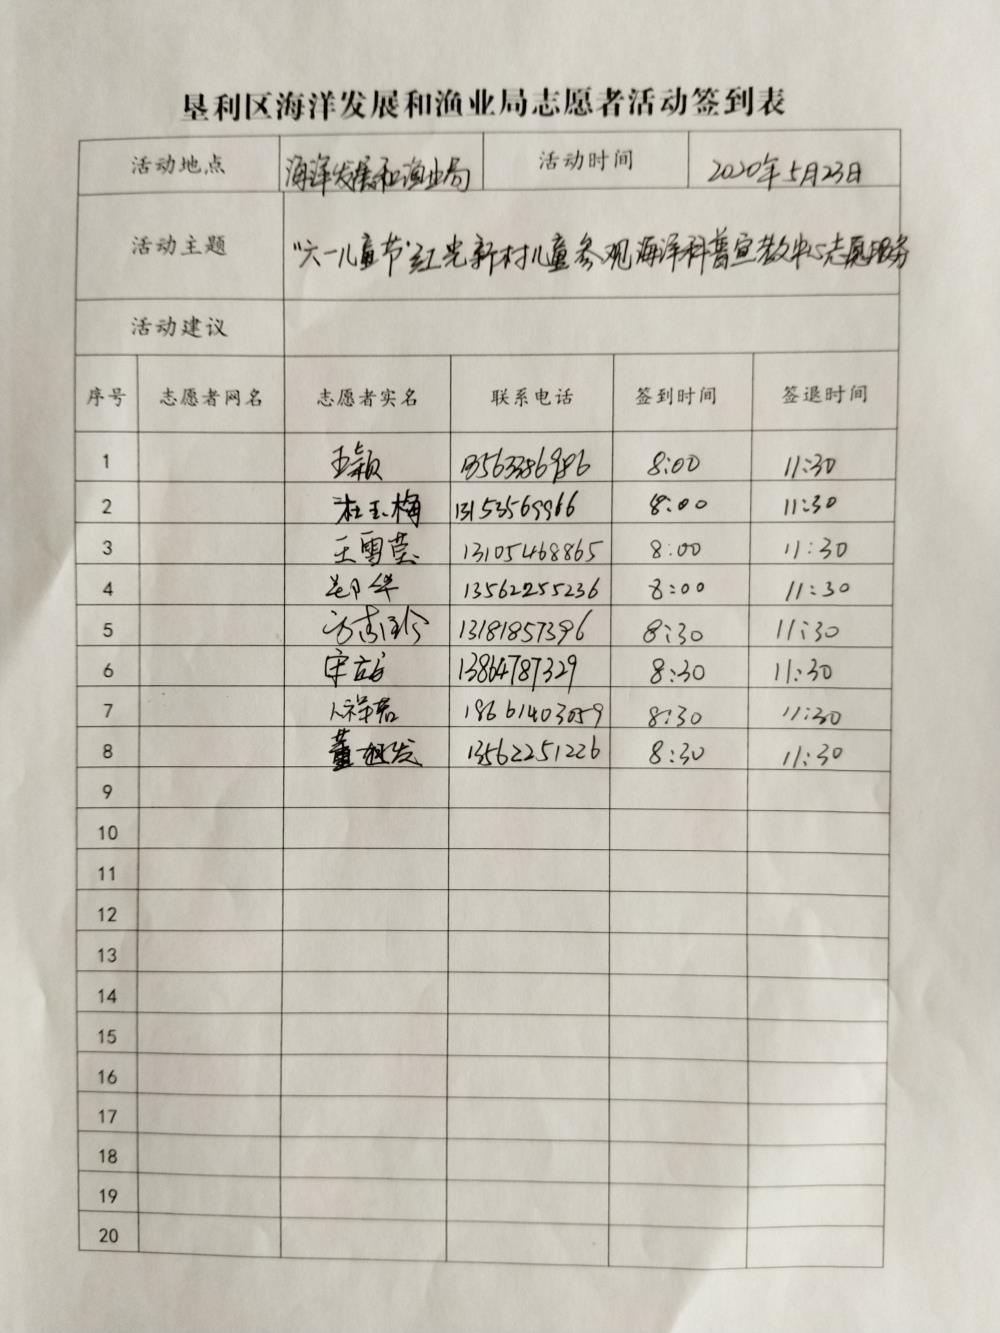 垦利区海洋发展和渔业局志愿者活动签到表
活动地点 海洋发展和渔业局 活动时间 2020年5月23日
活动主题 "六一儿童节"红光新村儿童参观海洋科普宣教中心志愿服务
活动建议
序号 志愿者网名 志愿者实名 联系电话 签到时间 签退时间
1 王颖 13563386986 8:00 11:30
2 杜玉梅 13153569966 8:00 11:30
3 王雪莹 13105468865 8:00 11:30
4 13562255236 8:00 11:30
5 13181857396 8:30 11:30
6 13864787329 8:30 11:30
7 18661403059 8:30 11:30
8 董 发 13562251226 8:30 11:30
9
10
11
12
13
14
15
16
17
18
19
20